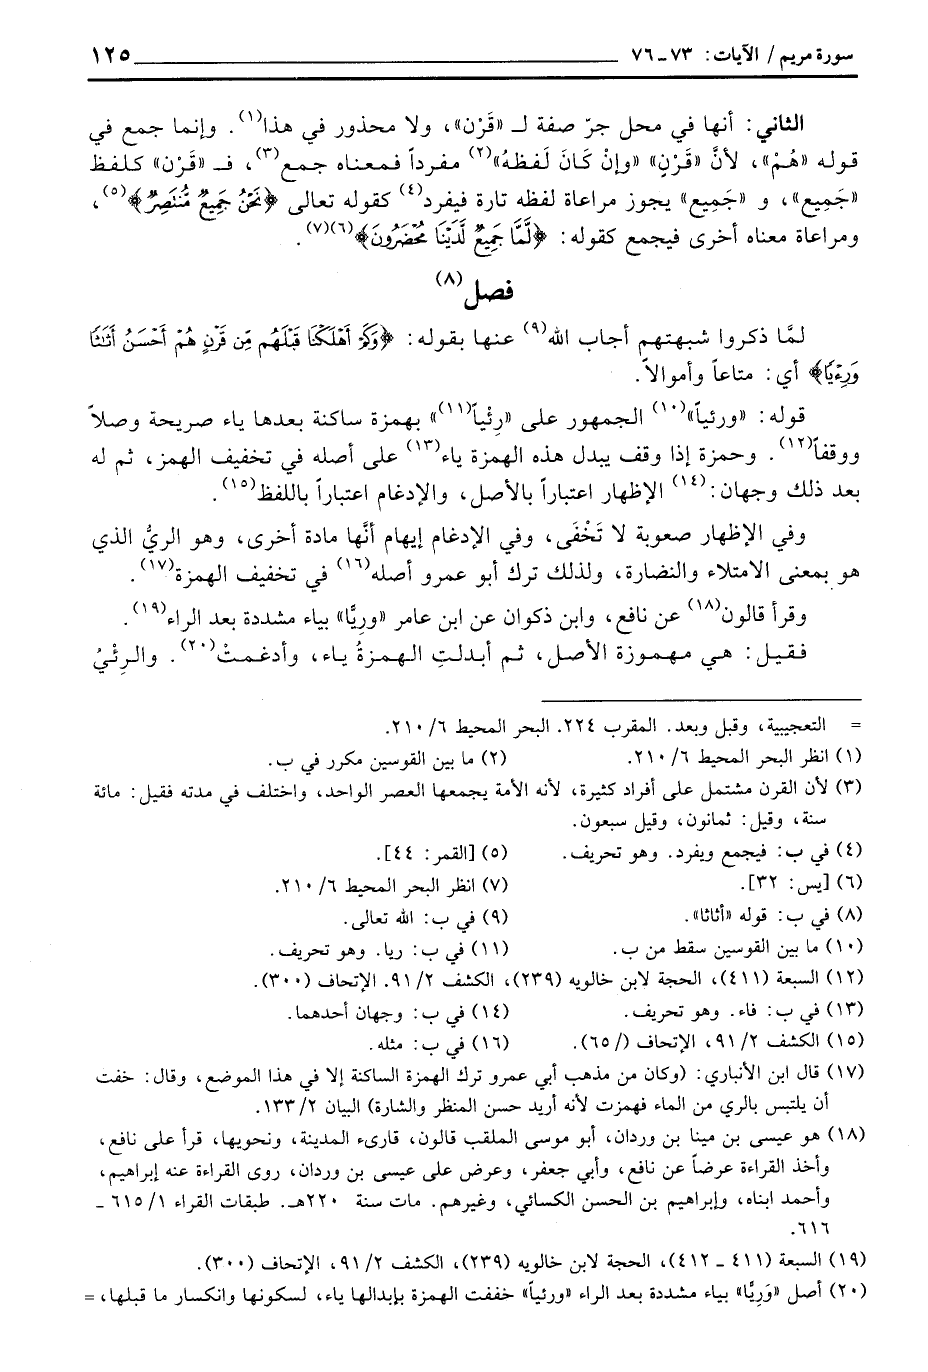 سورة مريم / الآيات: ٧٣ ـ ٧٦ ١٢٥
الثاني: أنها في محل جرّ صفة لـ «قَرْن»، ولا محذور في هذا(١). وإنما جمع في
قوله «هُمْ»، لأنَّ «قَرْنٍ» «وإنْ كَانَ لَفظهُ»(٢) مفرداً فمعناه جمع(٣)، فـ «قَرْن» كلفظ
«جَمِيع»، و «جَمِيع» يجوز مراعاة لفظه تارة فيفرد(٤) كقوله تعالى ﴿نَحْنُ جَمِيعٌ مُّنتَصِرٌ﴾(٥)،
ومراعاة معناه أخرى فيجمع كقوله: ﴿لَّمَّا جَمِيعٌ لَّدَيْنَا مُحْضَرُونَ﴾(٦)(٧).
فصل(٨)
لمَّا ذكروا شبهتهم أجاب الله(٩) عنها بقوله: ﴿وَكَمْ أَهْلَكْنَا قَبْلَهُم مِّن قَرْنٍ هُمْ أَحْسَنُ أَثَاثًا
وَرِءْيًا﴾ أي: متاعاً وأموالاً.
قوله: «ورئياً»(١٠) الجمهور على «رِئْياً(١١)» بهمزة ساكنة بعدها ياء صريحة وصلاً
ووقفاً(١٢). وحمزة إذا وقف يبدل هذه الهمزة ياء(١٣) على أصله في تخفيف الهمز، ثم له
بعد ذلك وجهان:(١٤) الإظهار اعتباراً بالأصل، والإدغام اعتباراً باللفظ(١٥).
وفي الإظهار صعوبة لا تَخْفَى، وفي الإدغام إيهام أنَّها مادة أخرى، وهو الريُّ الذي
هو بمعنى الامتلاء والنضارة، ولذلك ترك أبو عمرو أصله(١٦) في تخفيف الهمزة(١٧).
وقرأ قالون(١٨) عن نافع، وابن ذكوان عن ابن عامر «ورِيًّا» بياء مشددة بعد الراء(١٩).
فقيل: هي مهموزة الأصل، ثم أبدلتِ الهمزةُ ياء، وأدغمتْ(٢٠). والرِئْيُ
= التعجيبية، وقبل وبعد. المقرب ٢٢٤. البحر المحيط ٦/ ٢١٠.
(١) انظر البحر المحيط ٦/ ٢١٠. (٢) ما بين القوسين مكرر في ب.
(٣) لأن القرن مشتمل على أفراد كثيرة، لأنه الأمة يجمعها العصر الواحد، واختلف في مدته فقيل: مائة
سنة، وقيل: ثمانون، وقيل سبعون.
(٤) في ب: فيجمع ويفرد. وهو تحريف. (٥) [القمر: ٤٤].
(٦) [يس: ٣٢]. (٧) انظر البحر المحيط ٦/ ٢١٠.
(٨) في ب: قوله «أثاثا». (٩) في ب: الله تعالى.
(١٠) ما بين القوسين سقط من ب. (١١) في ب: ريا. وهو تحريف.
(١٢) السبعة (٤١١)، الحجة لابن خالويه (٢٣٩)، الكشف ٢/ ٩١. الإتحاف (٣٠٠).
(١٣) في ب: فاء. وهو تحريف. (١٤) في ب: وجهان أحدهما.
(١٥) الكشف ٢/ ٩١، الإتحاف (/٦٥). (١٦) في ب: مثله.
(١٧) قال ابن الأنباري: (وكان من مذهب أبي عمرو ترك الهمزة الساكنة إلا في هذا الموضع، وقال: خفت
أن يلتبس بالري من الماء فهمزت لأنه أريد حسن المنظر والشارة) البيان ٢/ ١٣٣.
(١٨) هو عيسى بن مينا بن وردان، أبو موسى الملقب قالون، قارىء المدينة، ونحويها، قرأ على نافع،
وأخذ القراءة عرضاً عن نافع، وأبي جعفر، وعرض على عيسى بن وردان، روى القراءة عنه إبراهيم،
وأحمد ابناه، وإبراهيم بن الحسن الكسائي، وغيرهم. مات سنة ٢٢٠هـ. طبقات القراء ١/ ٦١٥ ـ
٦١٦.
(١٩) السبعة (٤١١ ـ ٤١٢)، الحجة لابن خالويه (٢٣٩)، الكشف ٢/ ٩١، الإتحاف (٣٠٠).
(٢٠) أصل «وَرِيًّا» بياء مشددة بعد الراء «ورئياً» خففت الهمزة بإبدالها ياء، لسكونها وانكسار ما قبلها، =